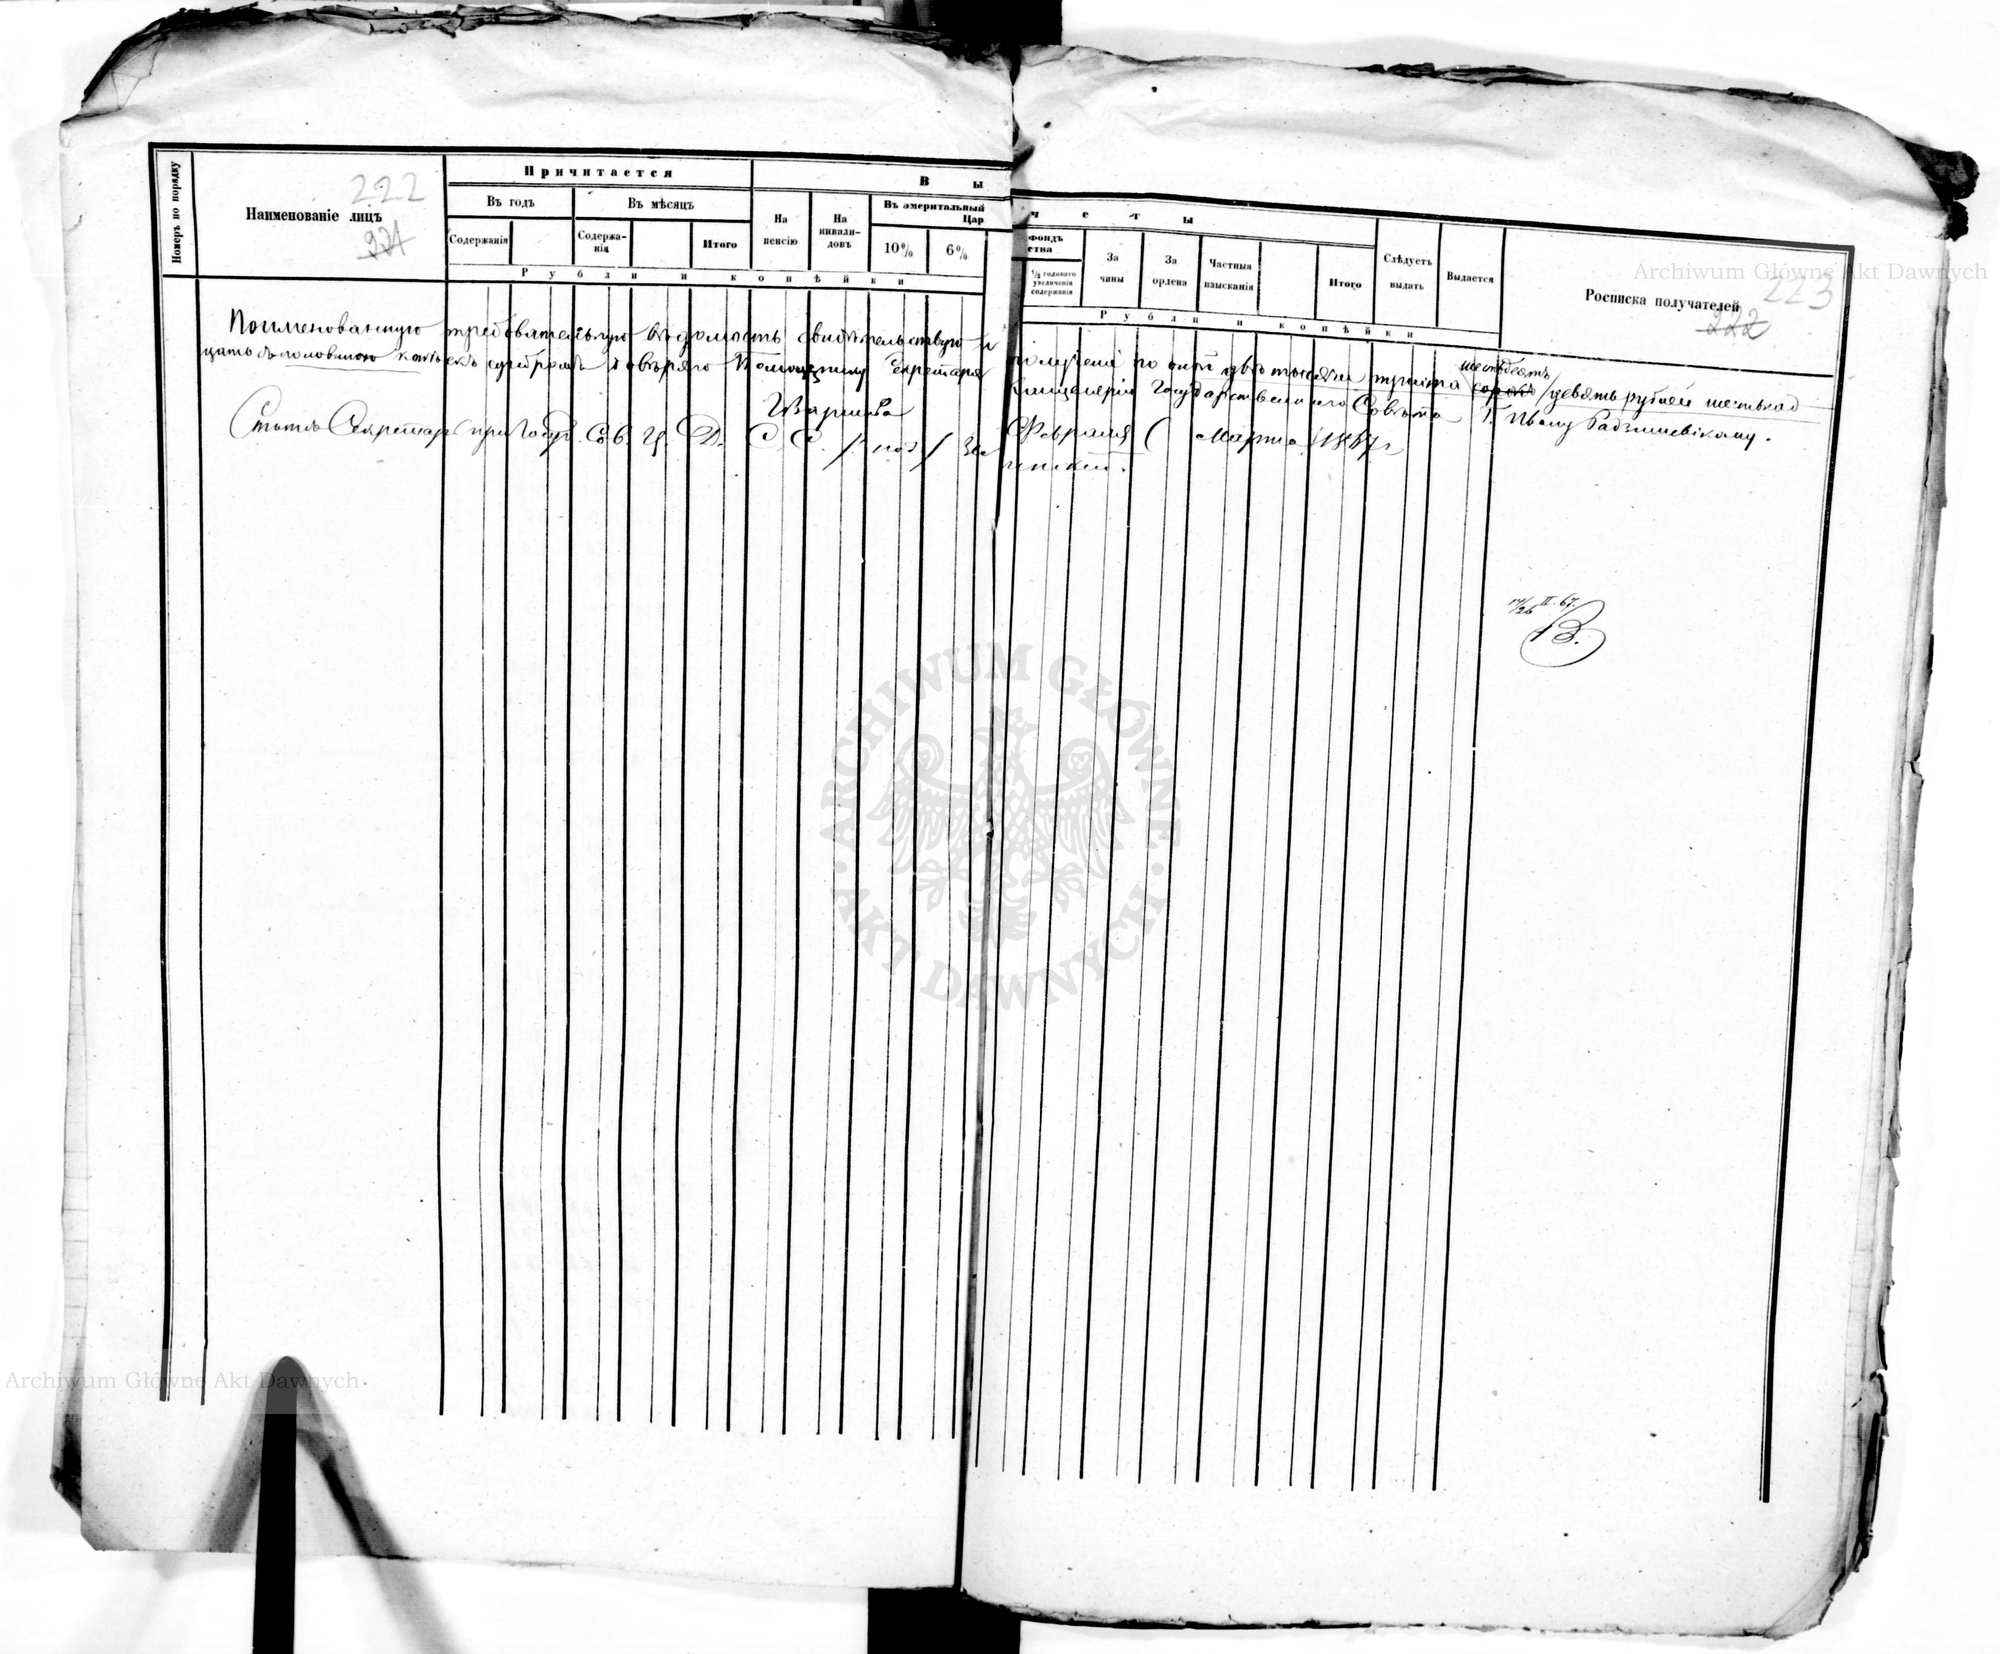 222
221
223
222
Номеръ по порядку
Наименованіе лицъ
Причитается
Въ годъ
Въ мѣсяцъ
Содержанія
Содержа-
нія
Итого
Вычеты
На
пенсію
На
инвали-
довъ
Въ эмеритальный фондъ
Царства
10%
6%
1/3 годоваго
увеличенія
содержанія
За
чины
За
ордена
Частныя
взысканія
Итого
Слѣдуетъ
выдать
Выдается
Росписка получателей
Рубли и копѣйки
Рубли и копѣйки
Поименованную требовательную вѣдомость свидѣтельствую и полученіе по оной двѣ тысячи триста шестьдесятъ сорокъ девять рублей шестьнад
цать съ половиною копѣекъ серебромъ довѣряю Помощнику Секретаря Канцеляріи Государственнаго Совѣта Г. Ивану Радзишевскому.
Варшава Февраля Марта 1867 г.
Статсъ Секретарь при Госуд. Сов. Ц. П. Д. С. С. /под/
14/26 II. 67.
В.
Archiwum Główne Akt Dawnych
ARCHIWUM GŁÓWNE · AKT DAWNYCH ·
Archiwum Główne Akt Dawnych